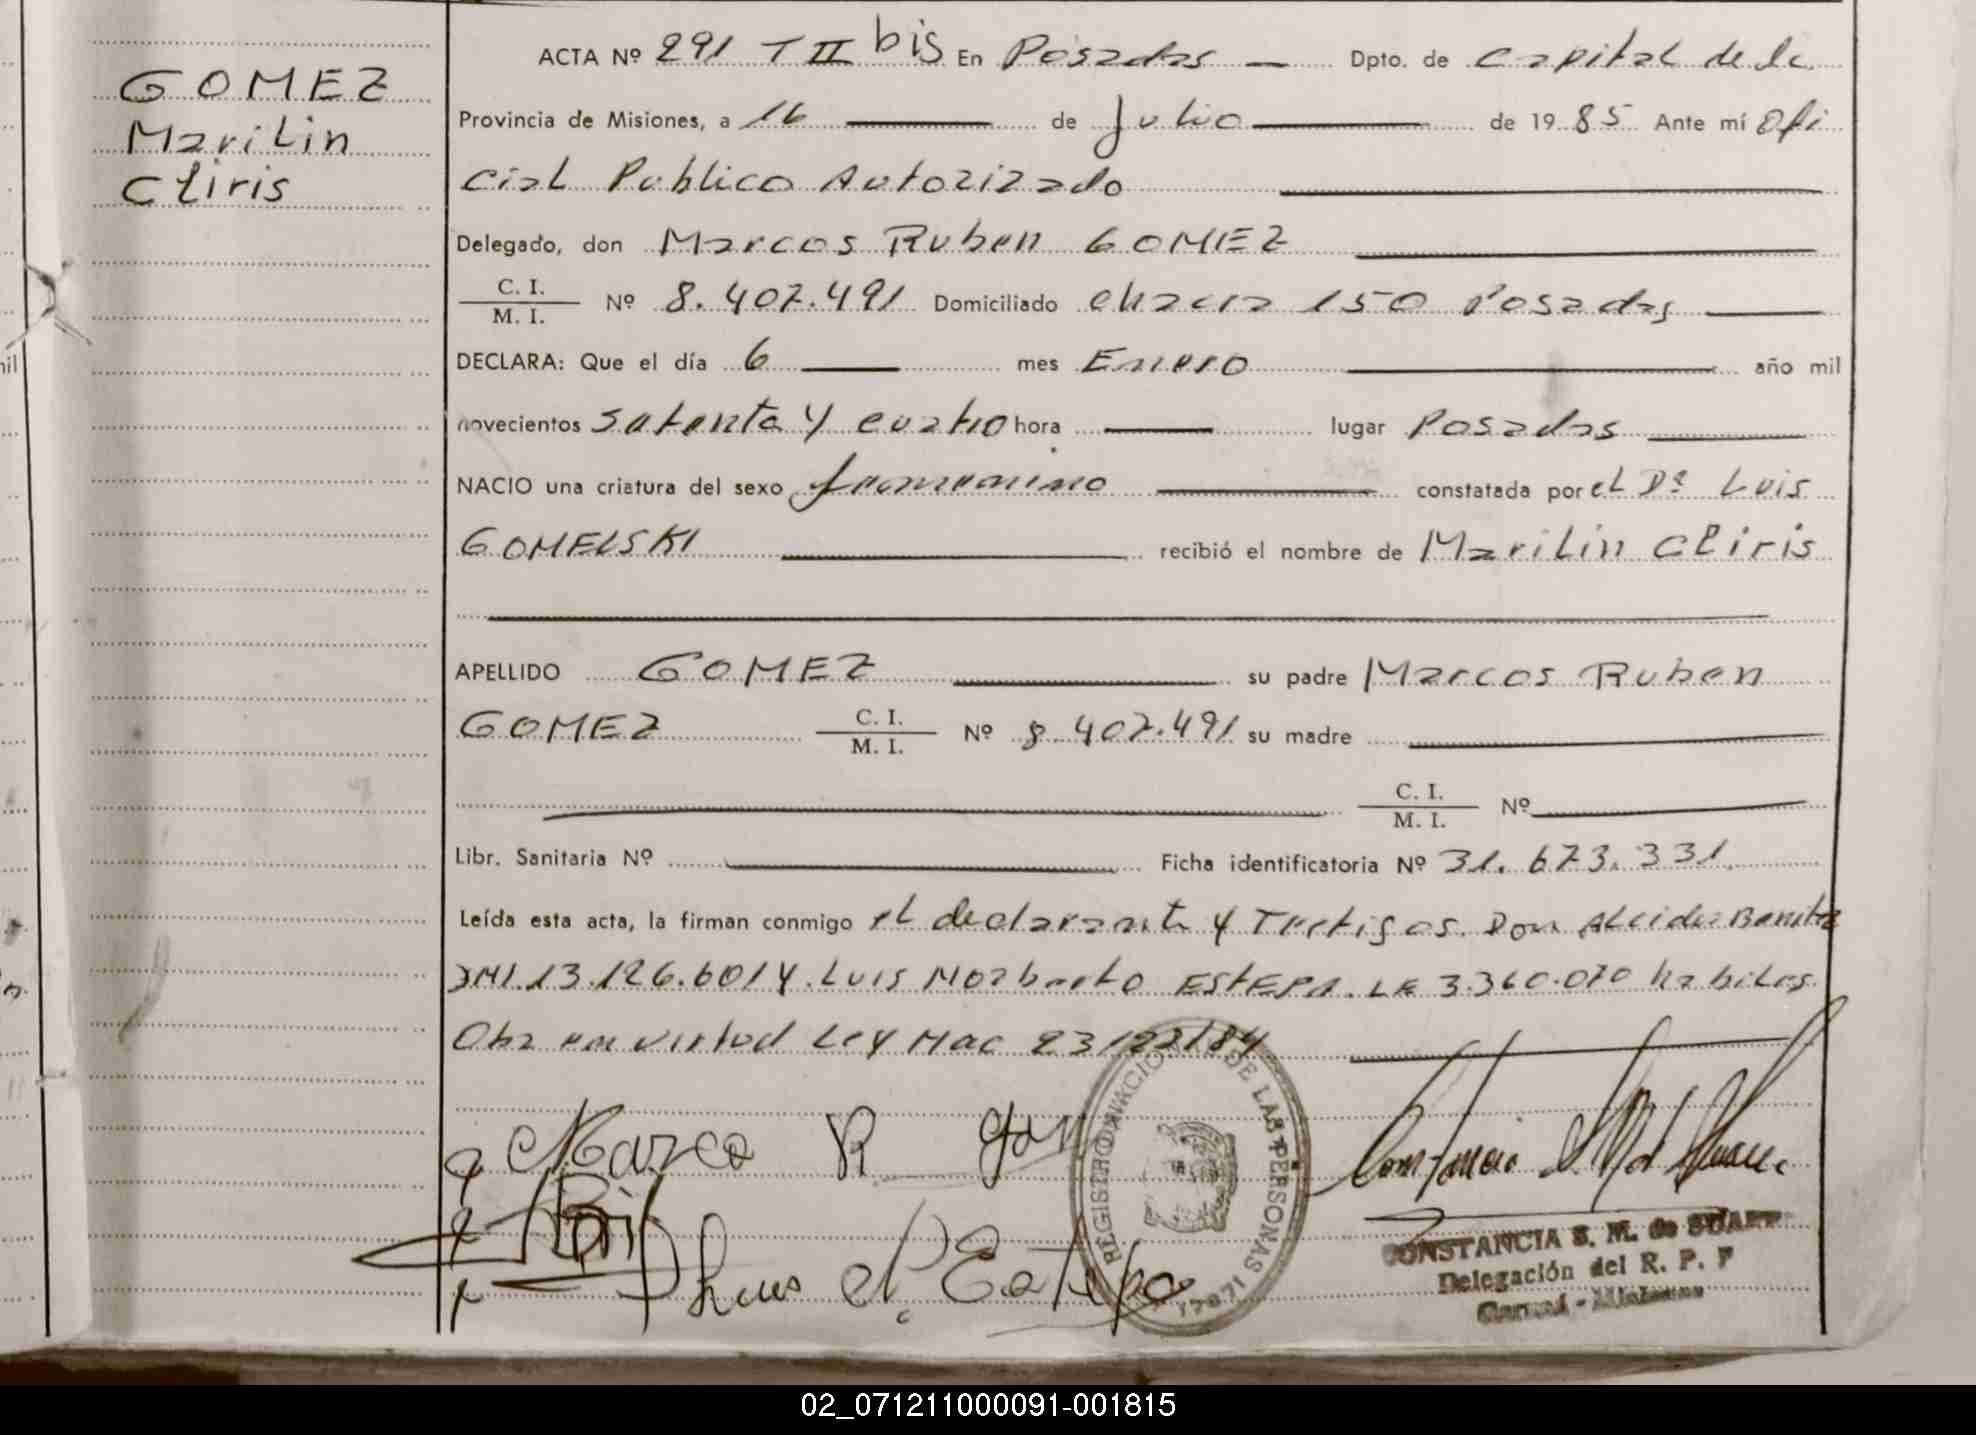 GOMEZ
Marilin
Cliris
ACTA Nº 291 T II bis En Posadas — Dpto. de Capital de la
Provincia de Misiones, a 16 de Julio de 1985 Ante mí Ofi
cial Publico Autorizado
Delegado, don Marcos Ruben GOMEZ
C. I.
M. I. Nº 8.407.491 Domiciliado chacra 150 Posadas
DECLARA: Que el día 6 mes Enero año mil
novecientos setenta y cuatro hora — lugar Posadas
NACIO una criatura del sexo femenino constatada por el Dr Luis
GOMELSKI recibió el nombre de Marilin Cliris
APELLIDO GOMEZ su padre Marcos Ruben
GOMEZ C. I.
M. I. Nº 8.407.491 su madre
C. I.
M. I. Nº
Libr. Sanitaria Nº Ficha identificatoria Nº 31.673.331
Leída esta acta, la firman conmigo el declarante y Testigos. Don Alcides Benitez
13.126.601 y Luis Norberto ESTEPA. LE 3.360.070 habiles.
Obra en virtud Ley Nac 23/22/84
Marco R Gom
Luis N. Estepa
REGISTRO PROVINCIAL DE LAS PERSONAS
CONSTANCIA S. M. de SUAREZ
Delegación del R. P. P
02_071211000091-001815